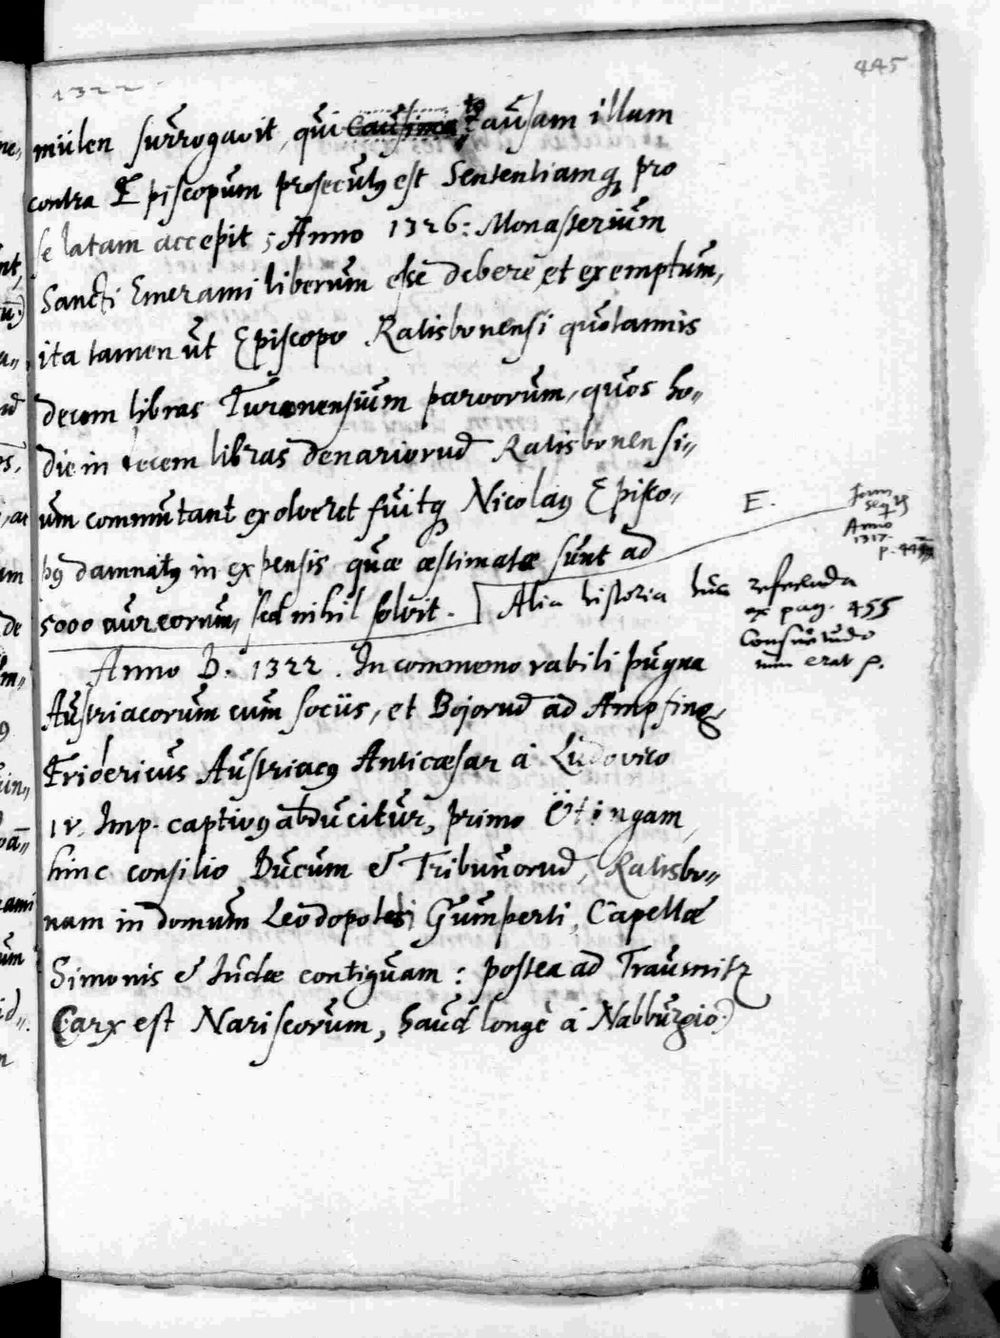 445
1322
mülen surrogavit, qui causam illam
contra Episcopum prosecutꝰ est Sententiamqꝫ pro
se latam accepit; Anno 1326: Monasterium
Sancti Emerami liberum esse debere, et exemptum,
ita tamen ut Episcopo Ratisbonensi quotannis
decem libras Turonensium parvorum, quos ho„
die in decem libras denariorum̄ Ratisbonensi„
um commutant exolveret fuitqꝫ Nicolaꝰ Episco„
pꝰ damnatꝰ in expensis quæ æstimatæ sunt ad
5000 aureorum, sed nihil solvit.
E.
Anno
1317.
Alia historia huc referenda
ex pag. 455
Consuetudo
erat
Anno D. 1322. In commemorabili pugna
Austriacorum cum sociis, et Bojorum̄ ad Ampfing,
Fridericus Austriacꝰ Anticæsar à Ludovico
IV. Imp. captivꝰ abducitur, primo Ötingam,
hinc consilio Ducum & Tribunorum̄, Ratisbo„
nam in domum Leodopoldi Gumperti, Capellæ
Simonis & Iudæ contiguam: postea ad Trausnitz
(arx est Nariscorum, haud longè à Nabburgio.)